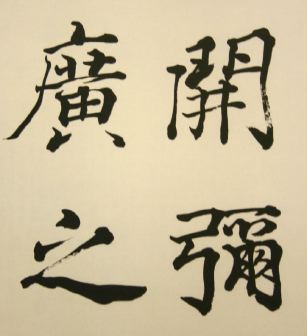 開彌
廣之